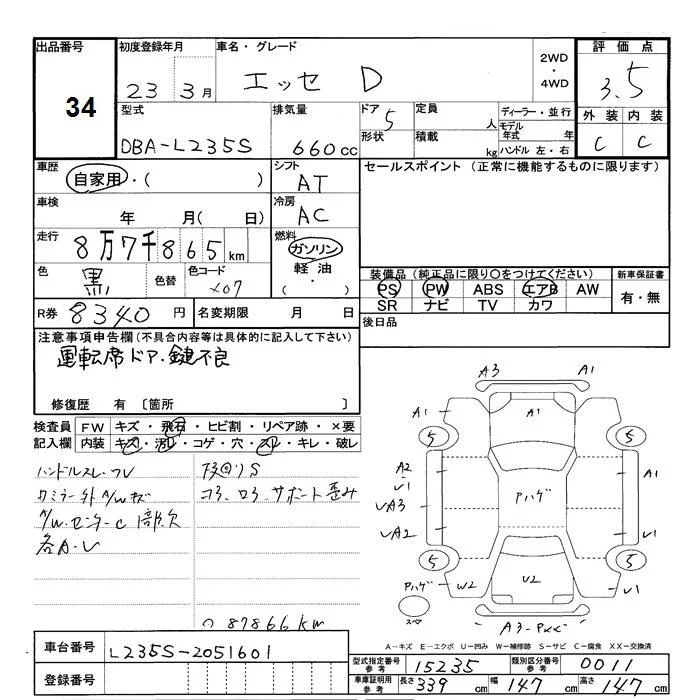 出品番号 34
初度登録年月 23年 3月
車名・グレード エッセ D
2WD・4WD
評価点 3.5
外装 内装
C C
型式 DBA-L235S
排気量 660cc
ドア 5
形状
定員 人
積載 kg
ディーラー・並行
モデル年式 年
ハンドル 左・右
車歴 自家用・( )
シフト AT
セールスポイント (正常に機能するものに限ります)
車検 年 月( 日)
冷房 AC
走行 8万7千865km
燃料 ガソリン
軽油・
( )
色 黒 色替 色コード X07
装備品 (純正品に限り○をつけてください)
PS PW ABS エアB AW
SR ナビ TV カワ
新車保証書
有・無
R券 8340円
名変期限 月 日
後日品
注意事項申告欄(不具合内容等は具体的に記入して下さい)
運転席ドア.鍵不良
修復歴 有 〔箇所 〕
検査員記入欄
FW キズ・飛石・ヒビ割・リペア跡・×要
内装 キズ・汚レ・コゲ・穴・スレ・キレ・破レ
ハンドルスレ.フレ
下回りS
コゴ.ロゴ.サポート歪み
A/W.センターC 部欠
各A.U
87866km
A3 A1
A1 A1 A1
5 5
A2 U1 A1
UA3 Pハゲ
UA2 U1
5 5
Pハゲ W2 U2 U1
スペア
A3
A-キズ E-エクボ U-凹み W-補修跡 S-サビ C-腐食 XX-交換済
車台番号 L235S-2051601
登録番号
型式指定番号 参考 15235
類別区分番号 参考 0011
車庫証明用 参考 長さ 339cm 幅 147cm 高さ 147cm